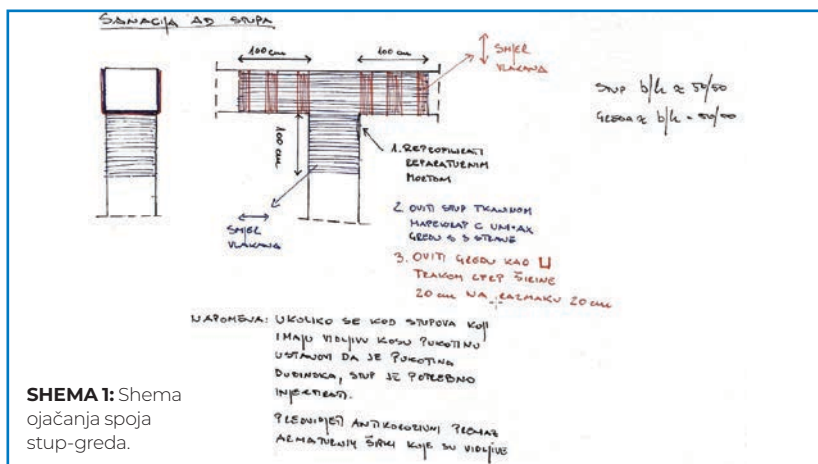 SANACIJA AB STUPA
100 cm
100 cm
SMJER
VLAKANA
STUP b/h ≈ 50/50
GREDA ≈ b/h = 50/50
100 cm
1. REPROFILIRATI
REPARATURNIM
MORTOM
2. OVITI STUP TKANINOM
MAPEWRAP C UNI-AX
GREDU S 3 STRANE
SMJER
VLAKANA
3. OVITI GREDU KAO U
TRAKOM CFRP ŠIRINE
20 cm NA RAZMAKU 20 cm
NAPOMENA: UKOLIKO SE KOD STUPOVA KOJI
IMAJU VIDLJIVU KOSU PUKOTINU
USTANOVI DA JE PUKOTINA
DUBINSKA, STUP JE POTREBNO
INJEKTIRATI.
PREDVIDJETI ANTIKOROZIVNI PREMAZ
ARMATURNIH ŠIPKI KOJE SU VIDLJIVE
SHEMA 1: Shema
ojačanja spoja
stup-greda.